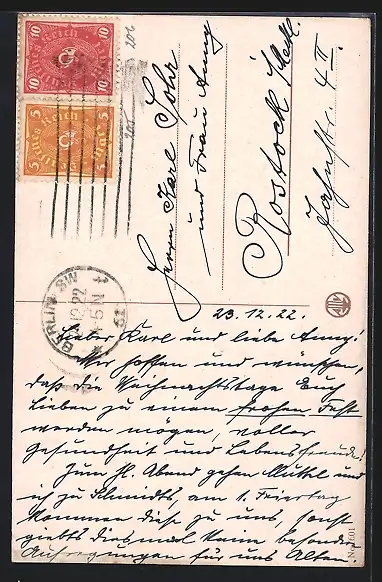 10 10
Deutsches Reich
5 5
Deutsches Reich
206
205
BERLIN SW
12.22
4-5N
Herrn Karl Sohr
und Frau Anny
Rostock i/Meckl.
Jahnstr. 4 II.
23.12.22.
Lieber Karl und liebe Anny!
Wir hoffen und wünschen,
daß die Weihnachtstage Euch
Lieben zu einem frohen Fest
werden mögen, voller
Gesundheit und Lebensfreude!
Zum hl. Abend gehen Muttel und
ich zu Schmidts, am 1. Feiertag
kommen diese zu uns, sonst
giebts diesmal keine besonderen
Aufregungen für uns Alten.